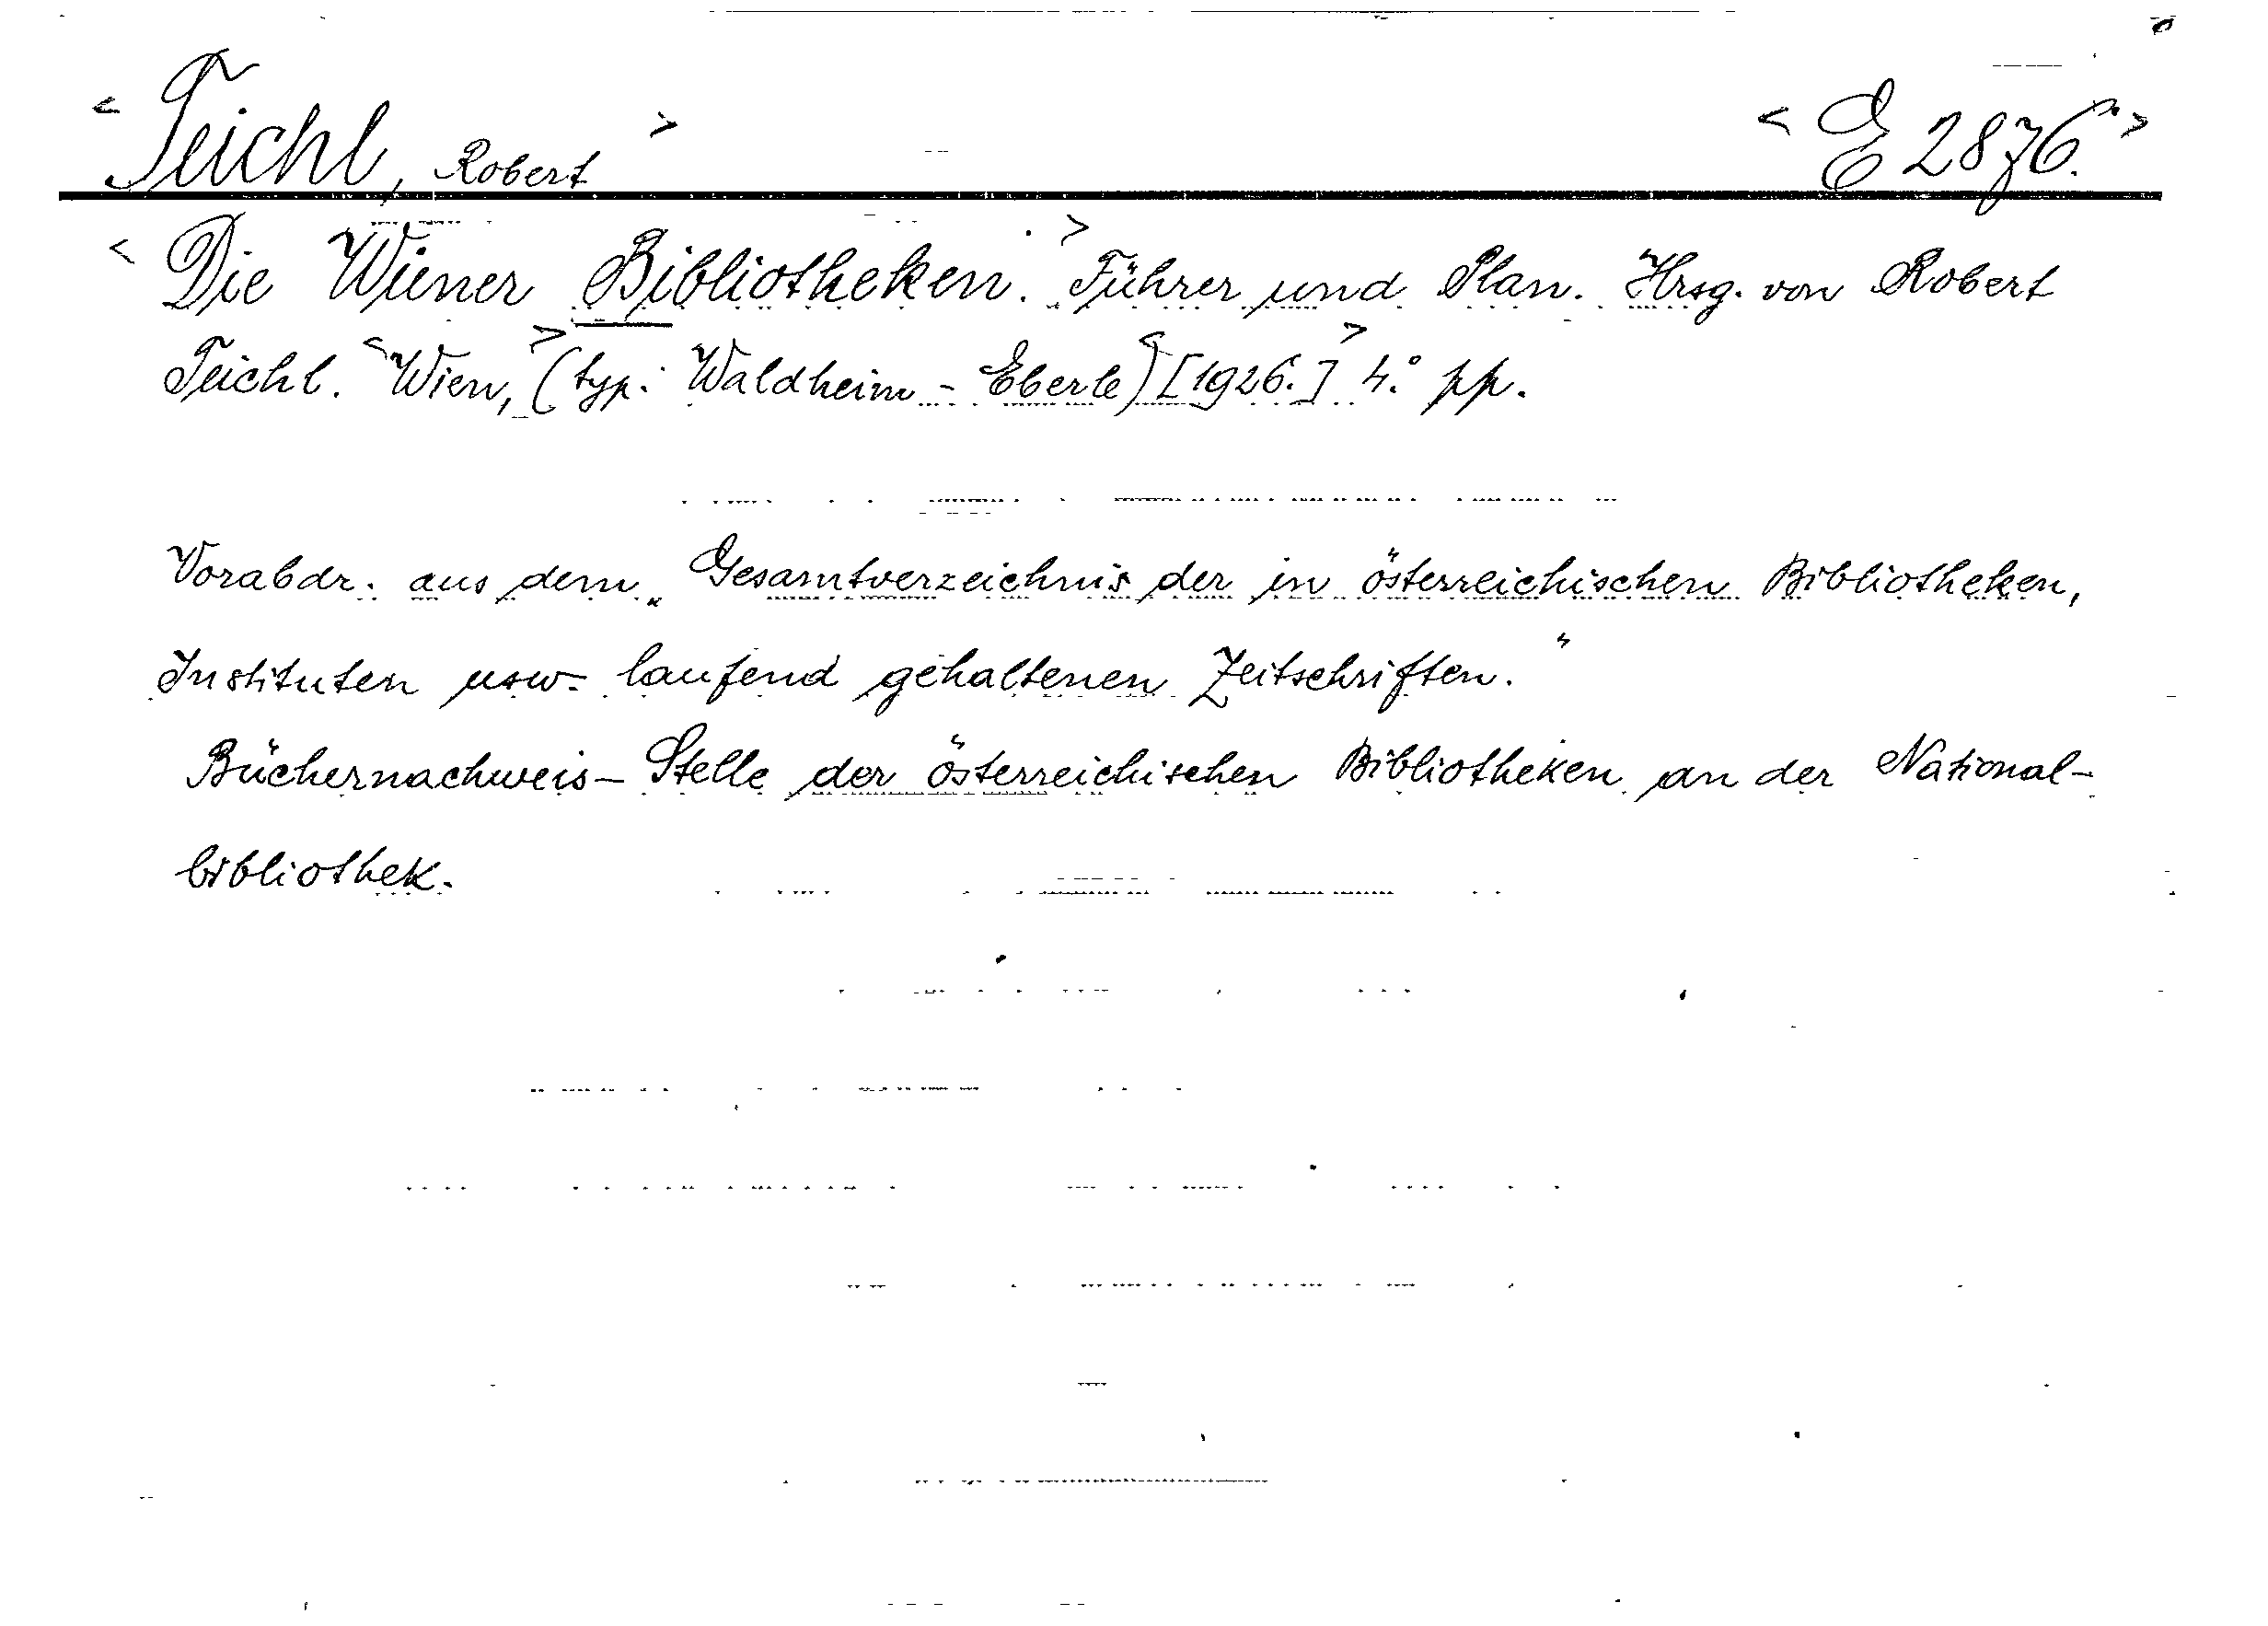 <Teichl, Robert> <E 2876.>
<Die Wiener Bibliotheken.> Führer und Plan. Hrsg. von Robert
Teichl. <Wien,> (typ. Waldheim-Eberle) <[1926.]> 4.° pp.
Vorabdr. aus dem „Gesamtverzeichnis der in österreichischen Bibliotheken,
Instituten usw. laufend gehaltenen Zeitschriften."
Büchernachweis-Stelle der österreichischen Bibliotheken an der National-
bibliothek.